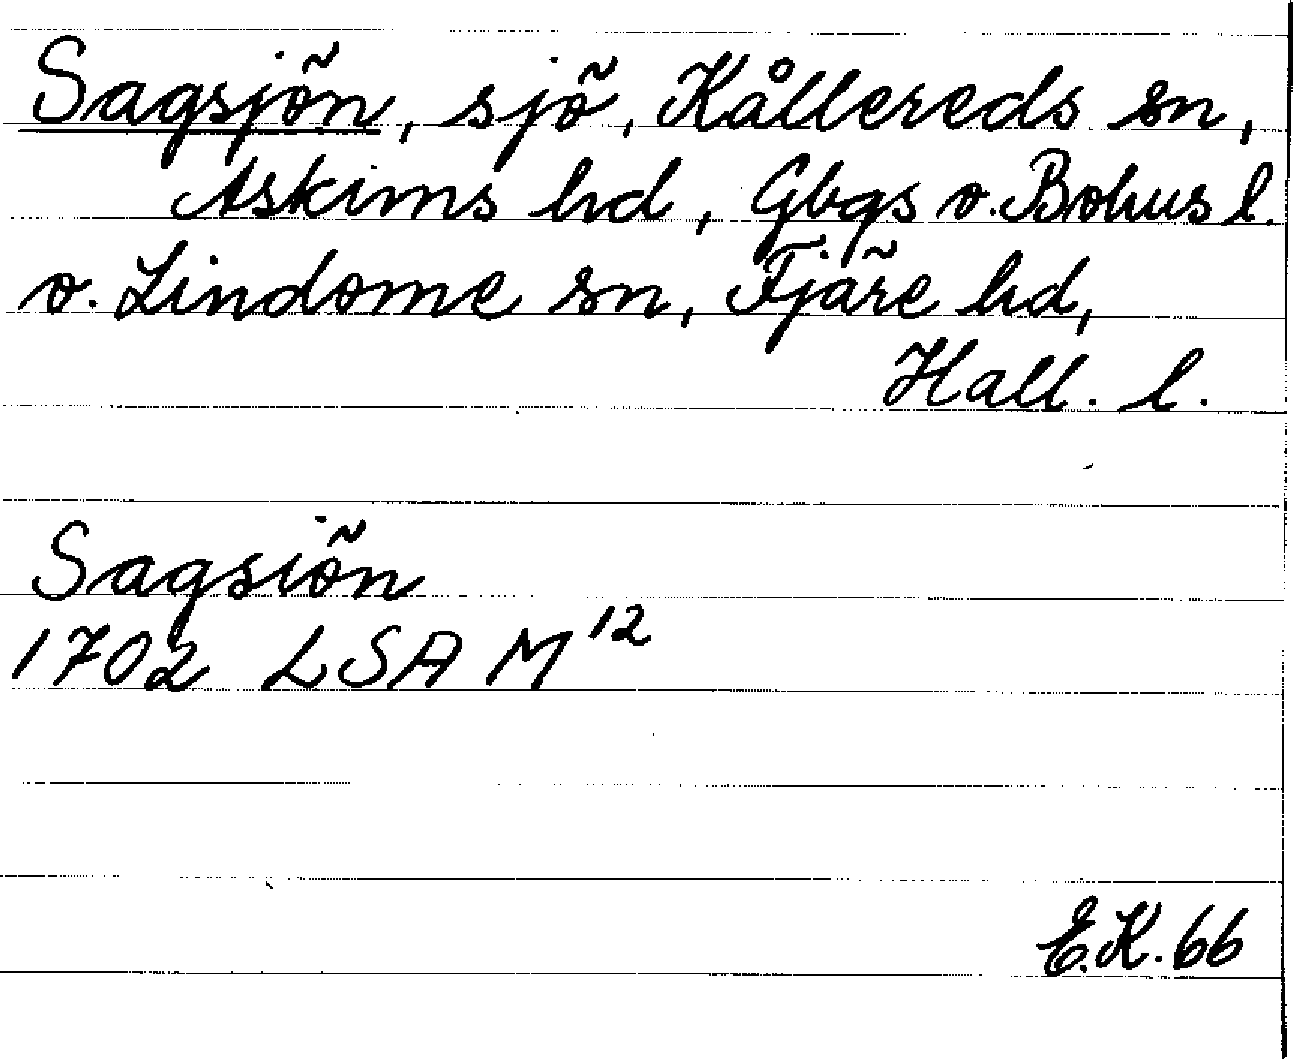 Sagsjön, sjö, Kållereds sn,
Askims hd, Gbgs o. Bohus l.
o. Lindome sn, Fjäre hd,
Hall. l.
Sagsiön
1702 LSA M¹²
E.K. 66